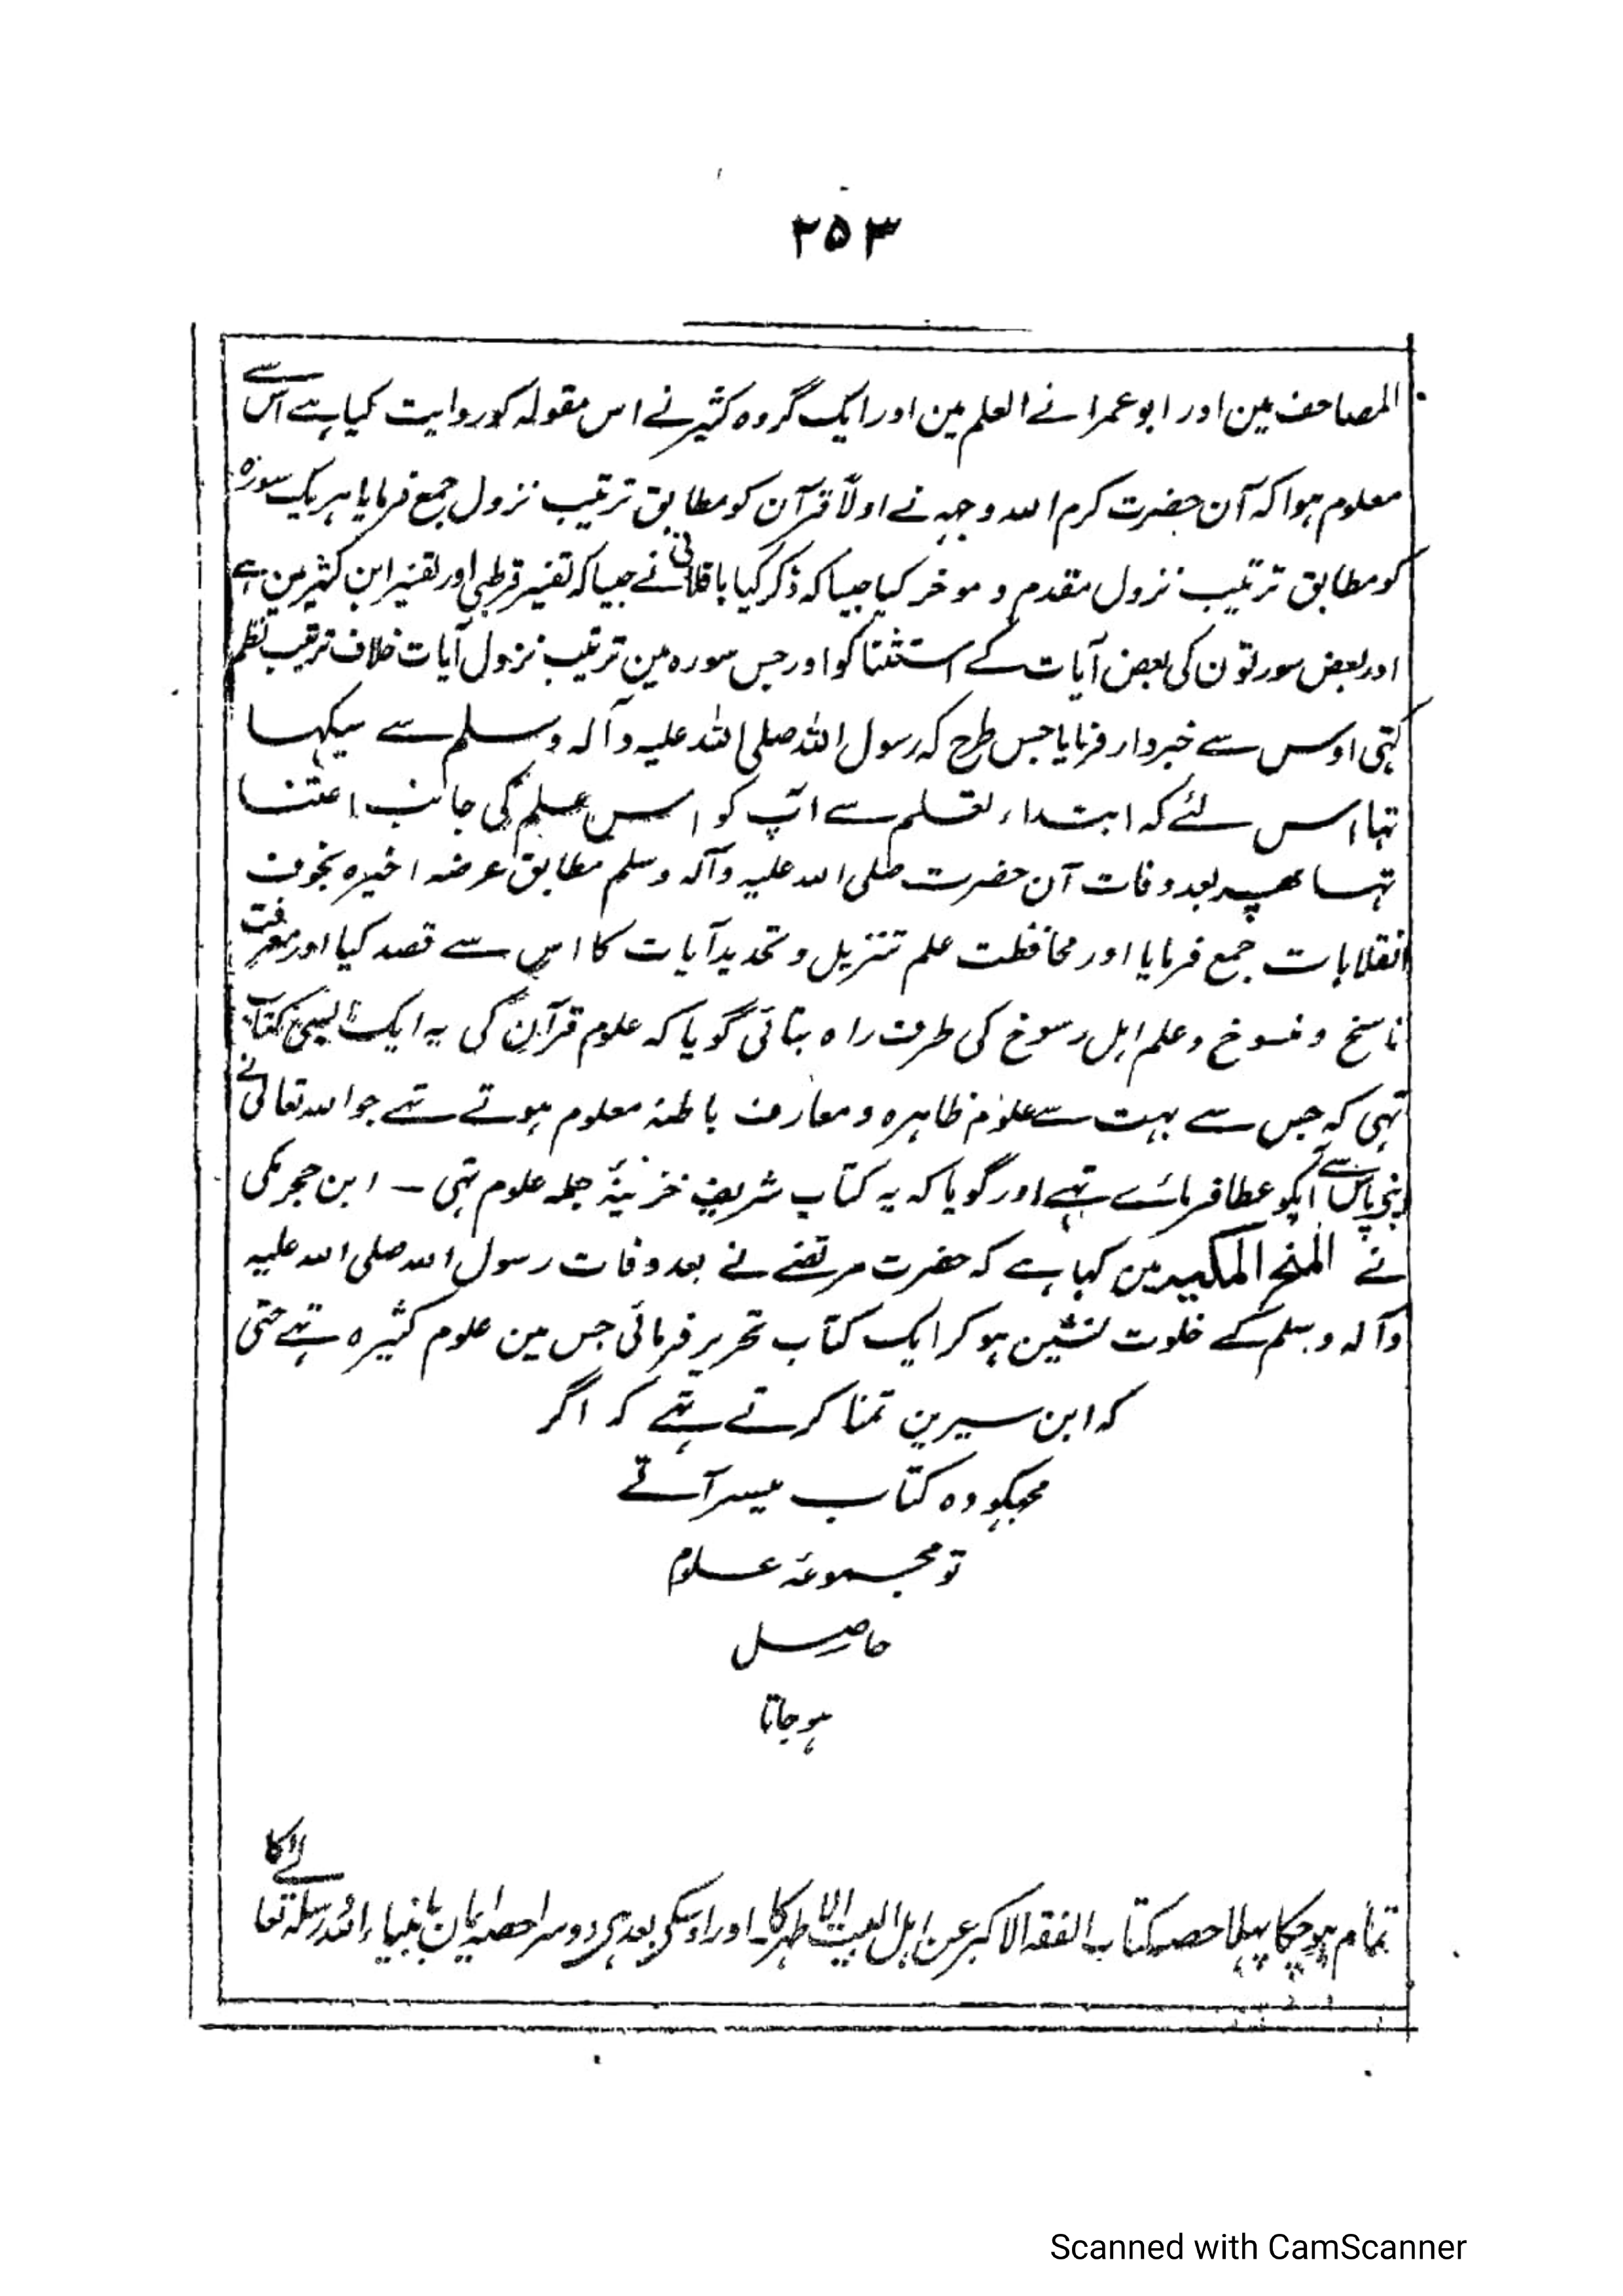 ۲۵۳
المصاحف مین اور ابو عمرا نے العلم مین اور ایک گروہ کثیر نے اس مقولہ کو روایت کیا ہے اس سے
معلوم ہوا کہ آن حضرت کرم اللہ وجہہ نے اولاً قرآن کو مطابق ترتیب نزول جمع فرمایا ہر یک سورہ
کو مطابق ترتیب نزول مقدم و موخر کیا جیسا کہ ذکر کیا باقلانی نے جیسا کہ تفسیر قرطبی اور تفسیر ابن کثیر مین ہے
اور بعض سورتون کی بعض آیات کے استثنا کو اور جس سورہ مین ترتیب نزول آیات خلاف ترتیب نظم
تہی اوس سے خبردار فرمایا جس طرح کہ رسول اللہ صلی اللہ علیہ وآلہ وسلم سے سیکہا
تہا اس لئے کہ ابتداء تعلم سے آپ کو اس علم کی جانب اعتنا
تہا پھر بعد وفات آن حضرت صلی اللہ علیہ وآلہ وسلم مطابق عرضہ اخیرہ بخوف
انقلابات جمع فرمایا اور محافظت علم تنزیل و تحدید آیات کا اس سے قصد کیا اور معرفت
ناسخ و منسوخ و علم اہل رسوخ کی طرف راہ بتائی گویا کہ علوم قرآن کی یہ ایک ایسی کتاب
تہی کہ جس سے بہت سے علوم ظاہرہ و معارف باطنہ معلوم ہوتے تہے جو اللہ تعالی نے
اپنی پاس سے آپکو عطا فرمائے تہے اور گویا کہ یہ کتاب شریف خزینۂ جملہ علوم تہی ـ ابن حجر مکی
نے المنح المکیہ مین کہا ہے کہ حضرت مرتضے نے بعد وفات رسول اللہ صلی اللہ علیہ
وآلہ وسلم کے خلوت نشین ہو کر ایک کتاب تحریر فرمائی جس مین علوم کثیرہ تہے حتی
کہ ابن سیرین تمنا کرتے تہے کہ اگر
مجہکو وہ کتاب میسر آتے
تو مجموعۂ علوم
حاصل
ہو جاتا
تمام ہو چکا پہلا حصہ کتاب الفقہ الاکبر عن اہل البیت الاطہر کا اور اوسکی بعد ہی دوسرا حصہ ایمان بانبیاء اللہ ورسلہ تعالے کا
Scanned with CamScanner